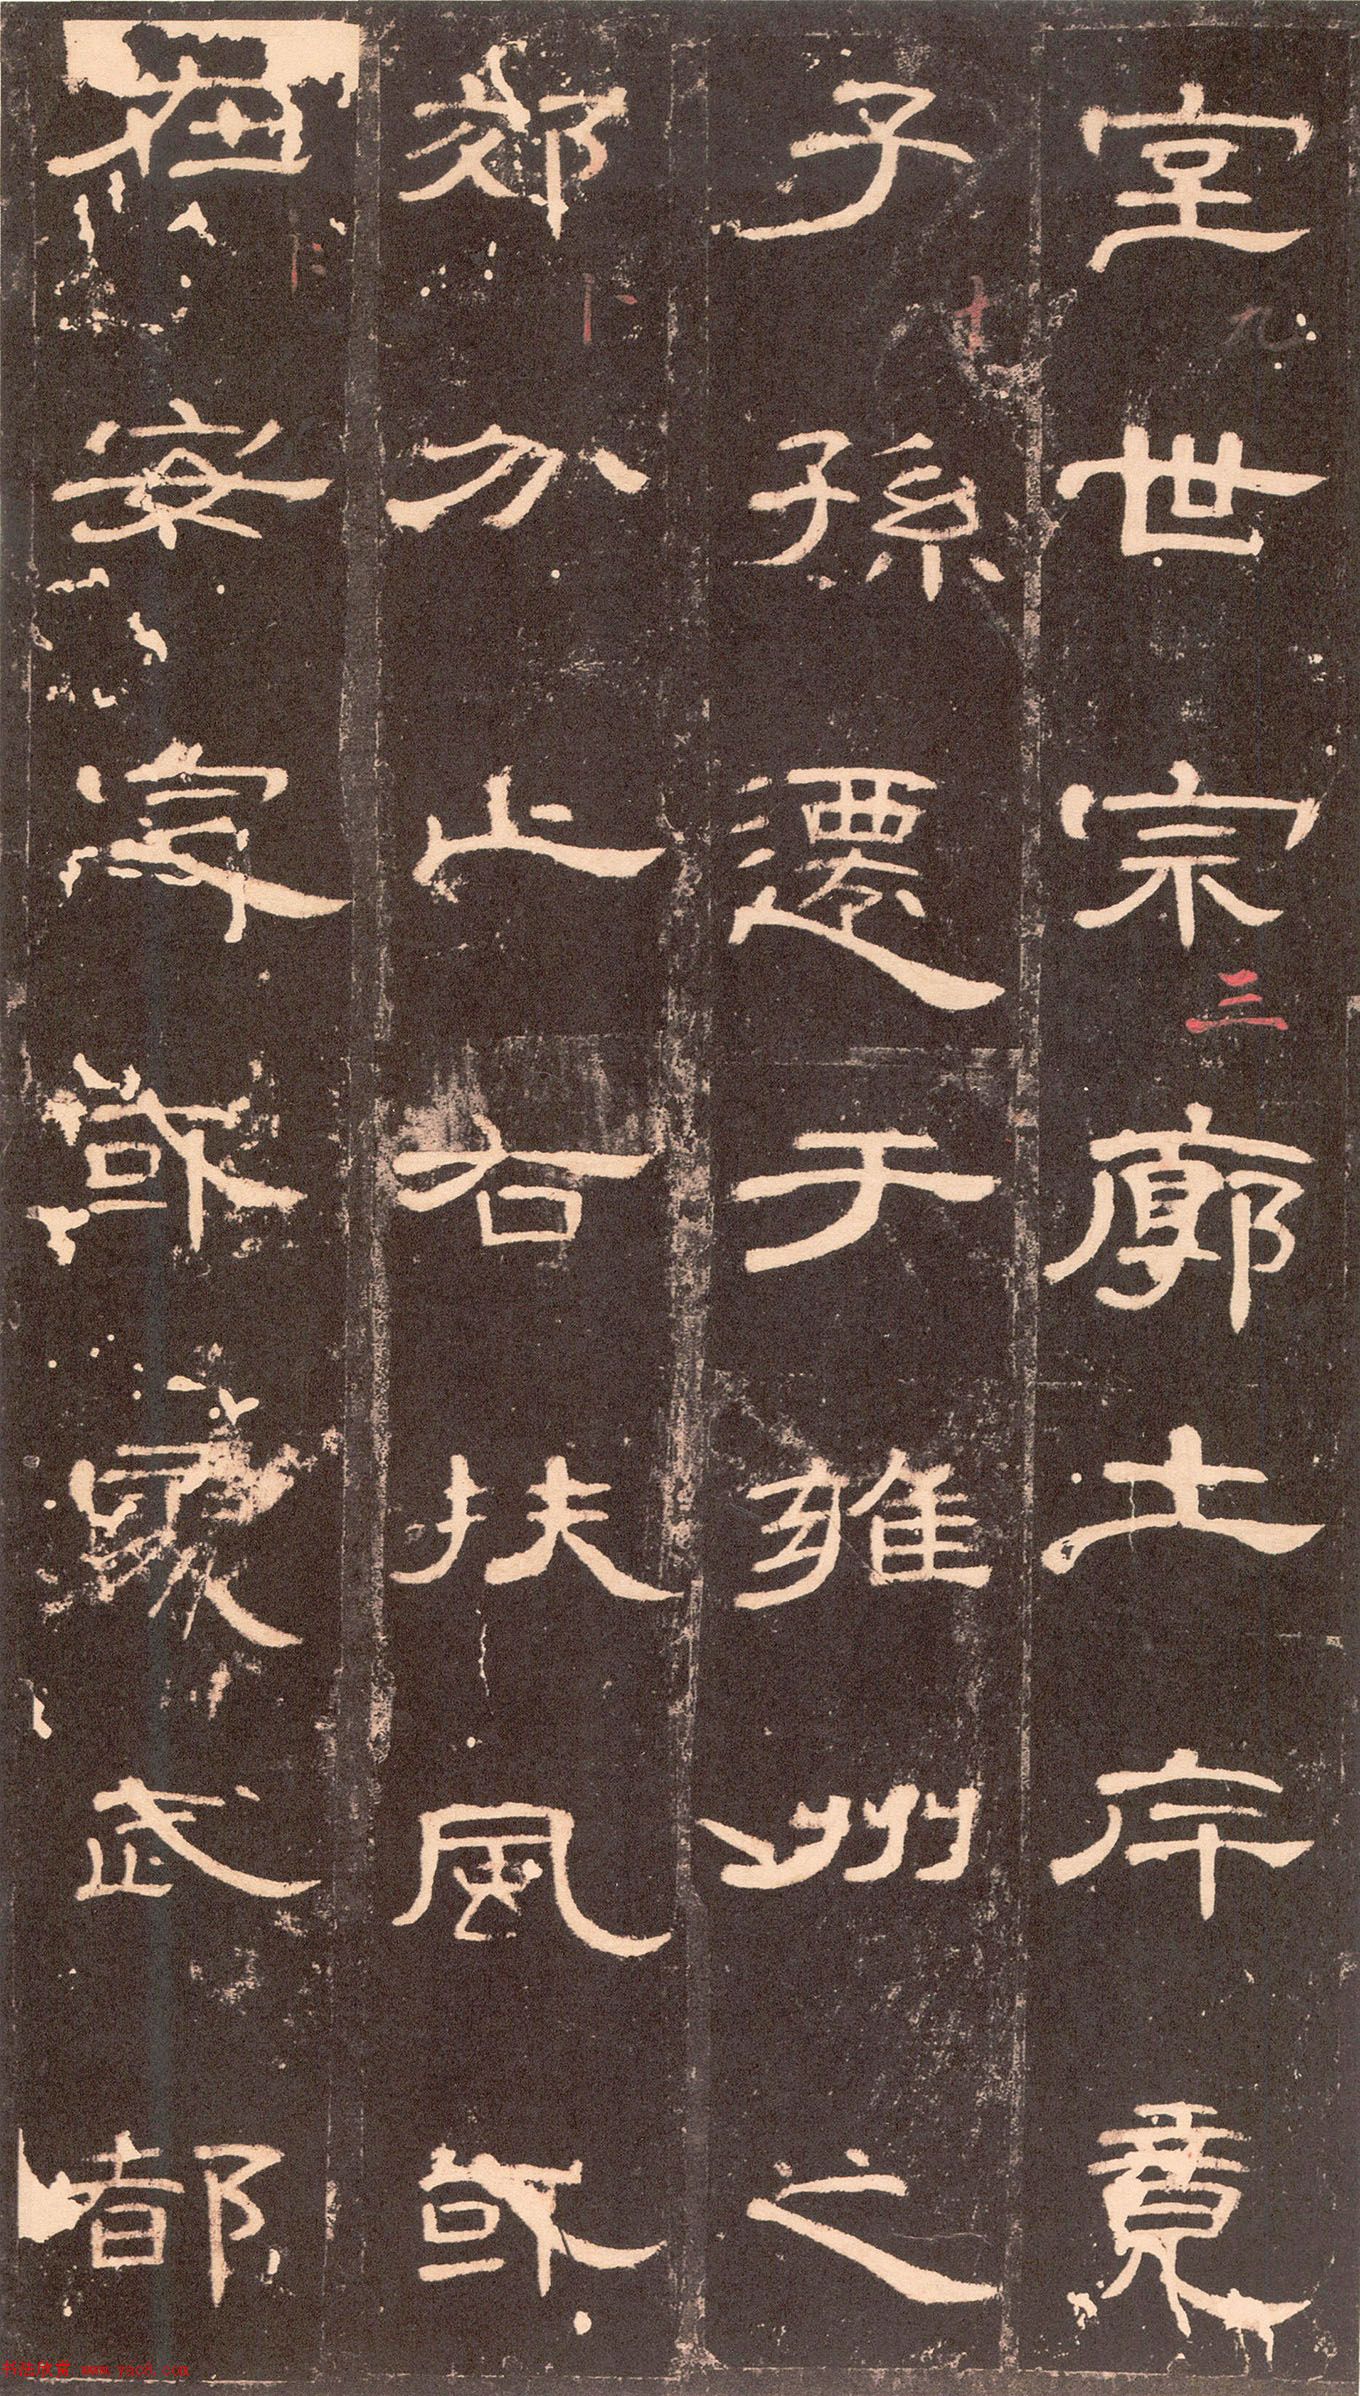 室世宗廓土斥竟
子孫遷于雍州之
郊分止右扶風或
在安定或處武都
九
十
三
www.yac8.com